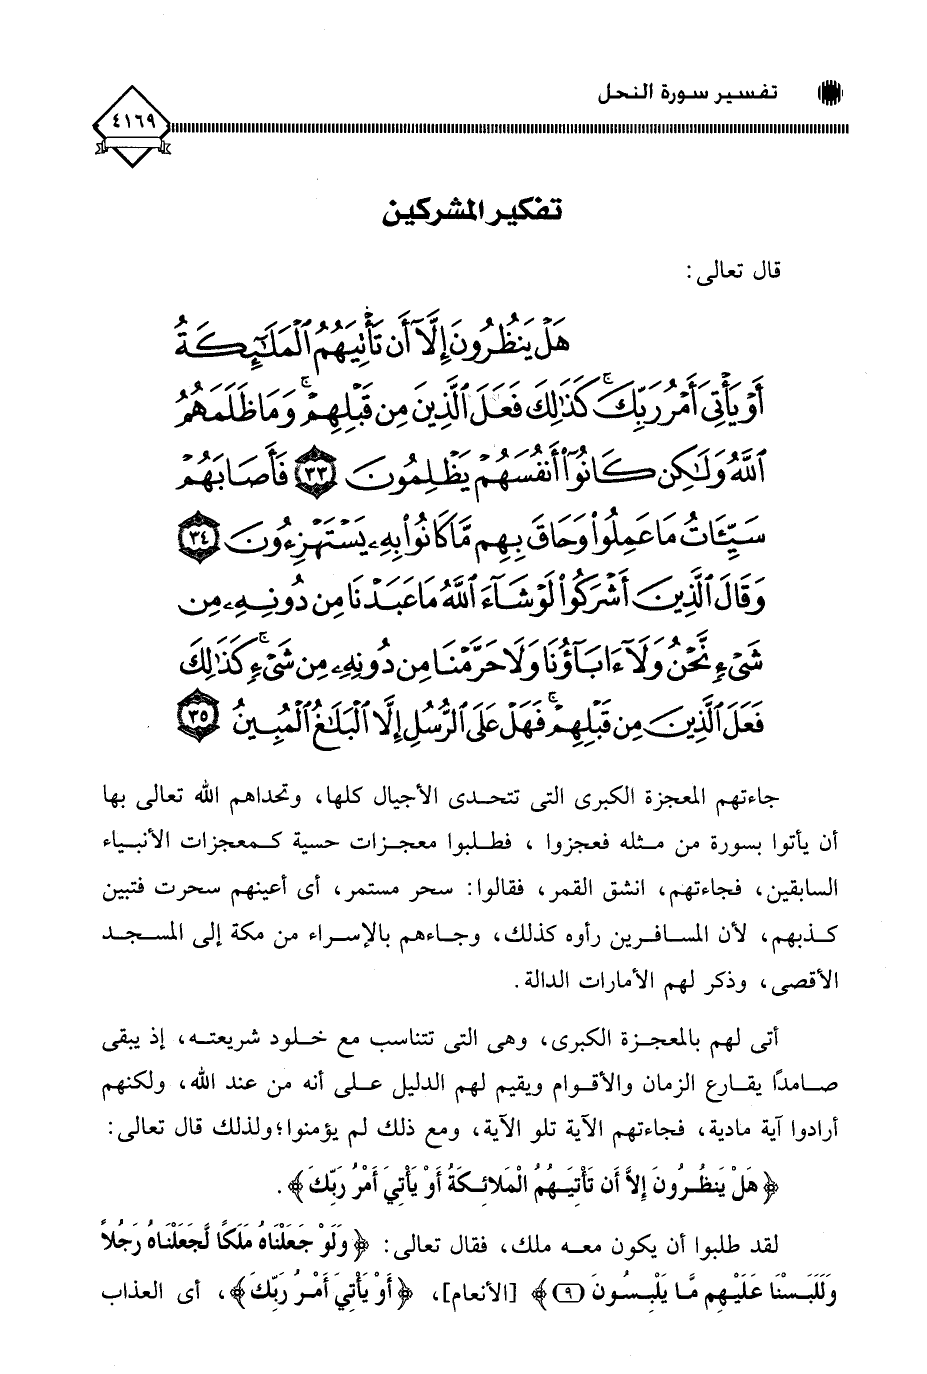 تفسير سورة النحل
٤١٦٩
تفكير المشركين
قال تعالى:
هَلْ يَنظُرُونَ إِلَّآ أَن تَأْتِيَهُمُ ٱلْمَلَٰٓئِكَةُ
أَوْ يَأْتِىَ أَمْرُ رَبِّكَ ۚ كَذَٰلِكَ فَعَلَ ٱلَّذِينَ مِن قَبْلِهِمْ ۚ وَمَا ظَلَمَهُمُ
ٱللَّهُ وَلَٰكِن كَانُوٓا۟ أَنفُسَهُمْ يَظْلِمُونَ ٣٣ فَأَصَابَهُمْ
سَيِّـَٔاتُ مَا عَمِلُوا۟ وَحَاقَ بِهِم مَّا كَانُوا۟ بِهِۦ يَسْتَهْزِءُونَ ٣٤
وَقَالَ ٱلَّذِينَ أَشْرَكُوا۟ لَوْ شَآءَ ٱللَّهُ مَا عَبَدْنَا مِن دُونِهِۦ مِن
شَىْءٍ نَّحْنُ وَلَآ ءَابَآؤُنَا وَلَا حَرَّمْنَا مِن دُونِهِۦ مِن شَىْءٍ ۚ كَذَٰلِكَ
فَعَلَ ٱلَّذِينَ مِن قَبْلِهِمْ ۚ فَهَلْ عَلَى ٱلرُّسُلِ إِلَّا ٱلْبَلَٰغُ ٱلْمُبِينُ ٣٥
جاءتهم المعجزة الكبرى التى تتحدى الأجيال كلها، وتحداهم الله تعالى بها
أن يأتوا بسورة من مثله فعجزوا ، فطلبوا معجزات حسية كمعجزات الأنبياء
السابقين، فجاءتهم، انشق القمر، فقالوا: سحر مستمر، أى أعينهم سحرت فتبين
كذبهم، لأن المسافرين رأوه كذلك، وجاءهم بالإسراء من مكة إلى المسجد
الأقصى، وذكر لهم الأمارات الدالة.
أتى لهم بالمعجزة الكبرى، وهى التى تتناسب مع خلود شريعته، إذ يبقى
صامدًا يقارع الزمان والأقوام ويقيم لهم الدليل على أنه من عند الله، ولكنهم
أرادوا آية مادية، فجاءتهم الآية تلو الآية، ومع ذلك لم يؤمنوا؛ولذلك قال تعالى:
﴿هَلْ يَنظُرُونَ إِلاَّ أَن تَأْتِيَهُمُ الْمَلائِكَةُ أَوْ يَأْتِيَ أَمْرُ رَبِّكَ﴾.
لقد طلبوا أن يكون معه ملك، فقال تعالى: ﴿وَلَوْ جَعَلْنَاهُ مَلَكًا لَّجَعَلْنَاهُ رَجُلاً
وَلَلَبَسْنَا عَلَيْهِم مَّا يَلْبِسُونَ (٩)﴾ [الأنعام]، ﴿أَوْ يَأْتِيَ أَمْرُ رَبِّكَ﴾، أى العذاب